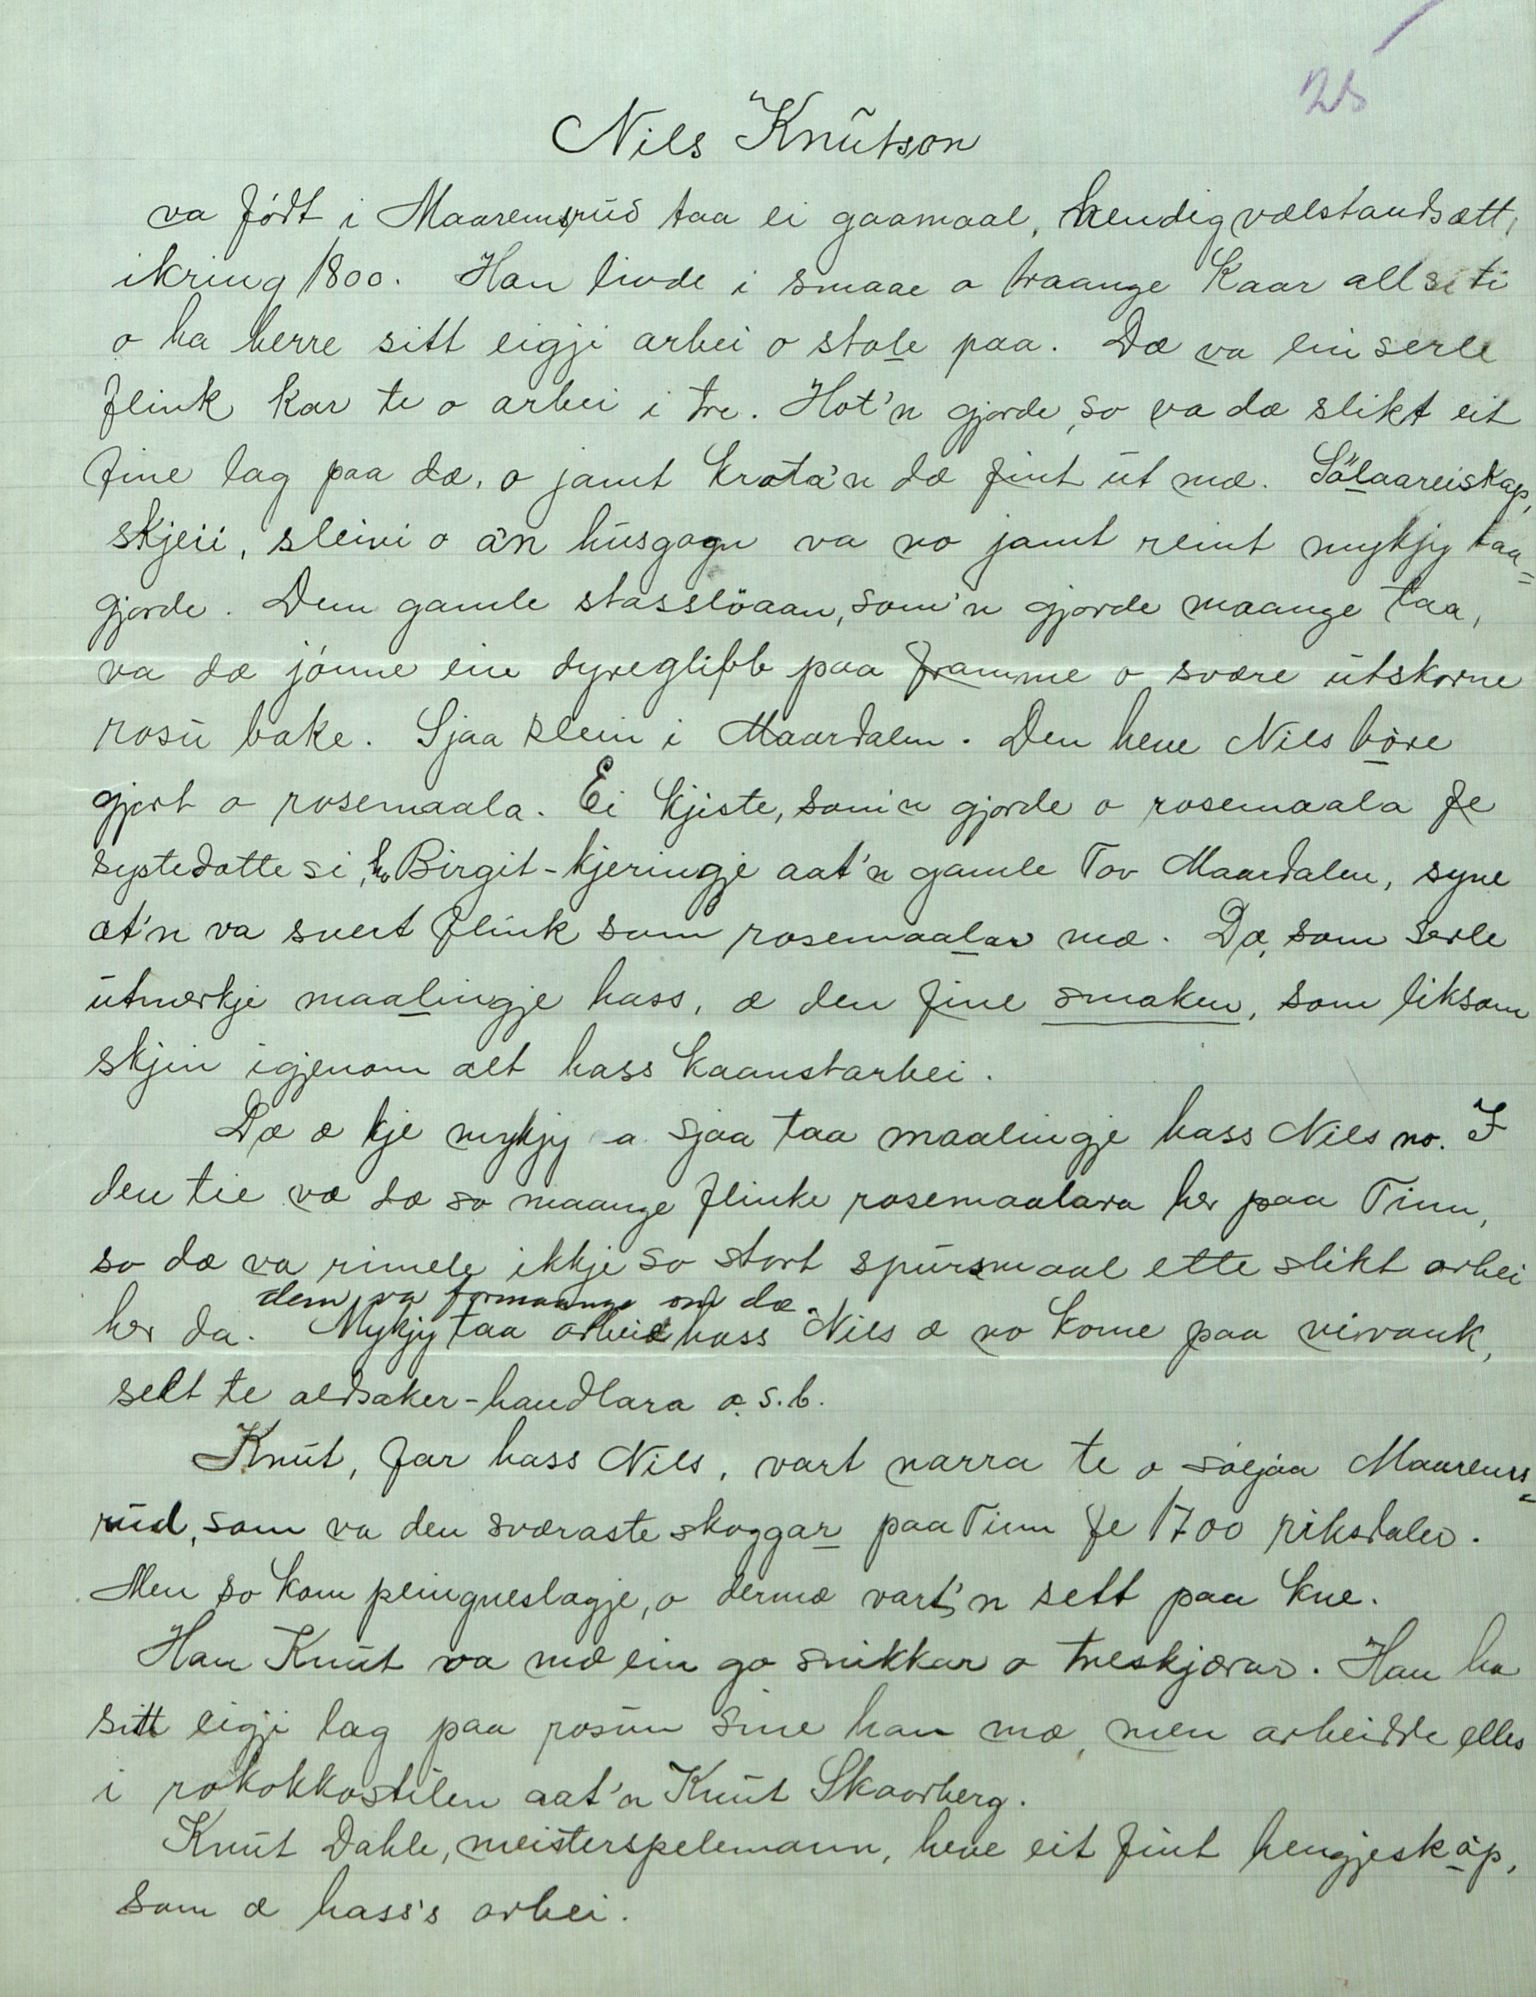 25
Nils Knutson
va født i Maaremsrud taa ei gaamaal, hendig vælstandsætt,
ikring 1800. Han livde i smaae o traange kaar all si ti
o ha berre sitt eigji arbei o stole paa. Dæ va ein serle
flink kar te o arbei i tre. Hot'n gjorde, so va dæ slikt eit
fine lag paa dæ, o jamt krota'n dæ fint ut mæ. Sölaareiskap,
skjeii, sleivi o a'n husgogn va no jamt reint mykjy taa=
gjorde. Dem gamle stasslöaan, som'n gjorde maange taa,
va dæ jónne ein dyreglibb paa framme o svære utskorne
rosu bake. Sjaa klein i Maardalen. Den heve Nils båre
gjort o rosemaala. Ei kjiste, som'n gjorde o rosemaala fe
systedotte si, ho Birgit-kjeringje aat'n gamle Tov Maardalen, syne
at'n va svert flink som rosemaalar mæ. Dæ, som serle
utmerkje maalingje hass, æ den fine smaken, som liksom
skjin igjenom alt hass kaanstarbei.
Dæ æ kje mykjy o sjaa taa maalingje hass Nils no. I
den tie va dæ so maange flinke rosemaalara her paa Tinn,
so dæ va rimele ikkje so stort spursmaal ette slikt arbei
dem va formaange om dæ.
her da. Mykjy taa arbeid hass Nils æ no kome paa vivank,
sellt te aldsaker-handlara o.s.b.
Knut, far hass Nils, vart narra te o söljaa Maarems=
rud, som va den sværaste skoggar paa Tinn fe 1700 riksdaler.
Men so kom peingneslagje, o dermæ vart'n sett paa kne.
Han Knut va mæ ein go snikkar o treskjærar. Han ha
sitt eigji lag paa rosun sine han mæ, men arbeidde elles
i rokokkostilen aat'n Knut Skaarberg.
Knut Dahle, meisterspelemann, heve eit fint hengjeskåp,
som æ hass's arbei.